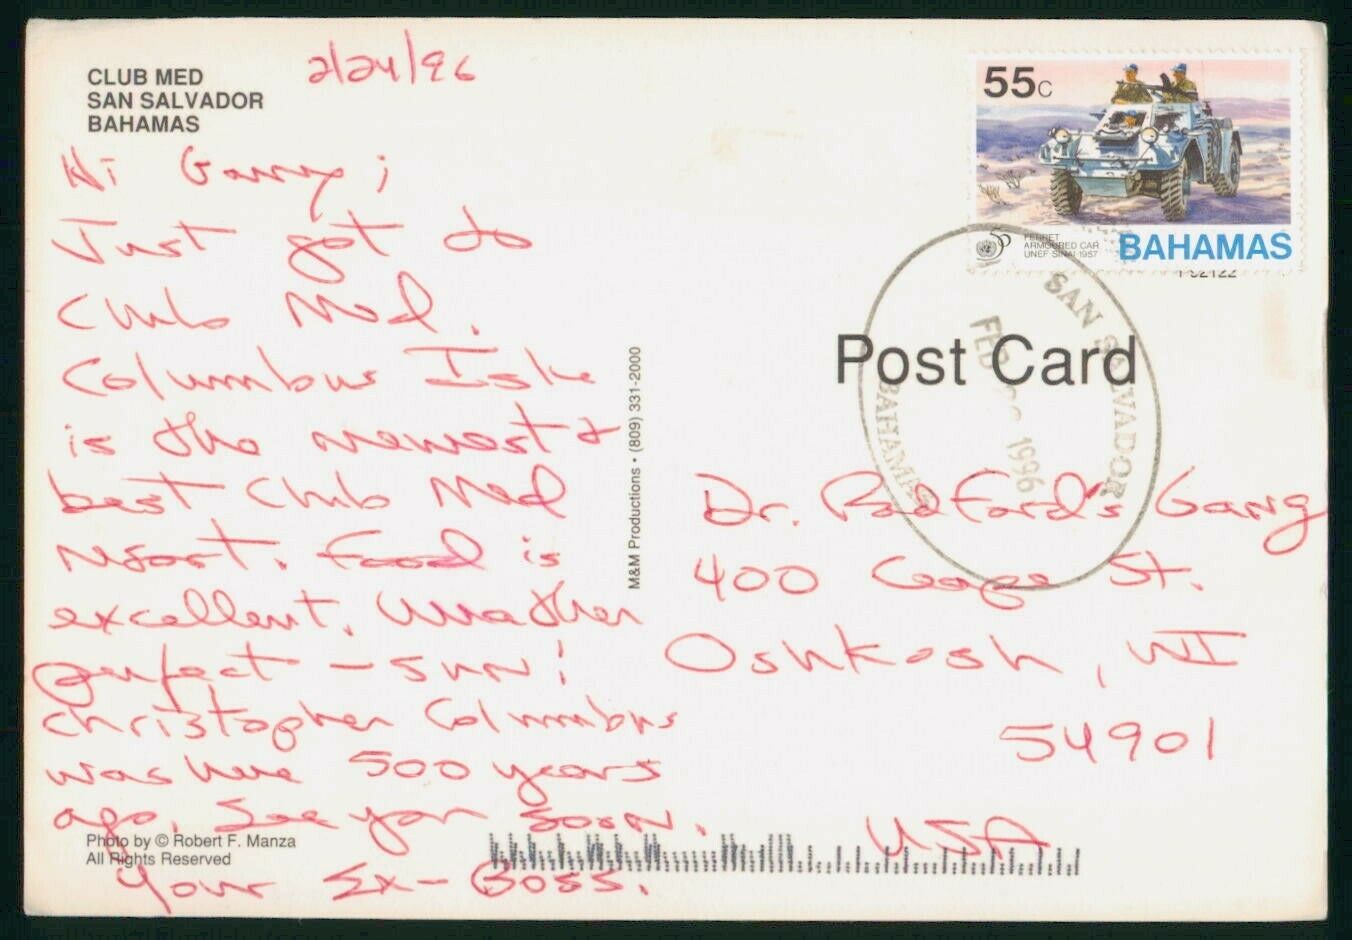 CLUB MED
SAN SALVADOR
BAHAMAS
2/24/96
Hi Gang;
Just got to
Club Med.
Columbus Isle
is the newest &
best Club Med
resort. Food is
excellent. Weather
perfect - sun!
Christopher Columbus
was here 500 years
ago. See you soon.
Your Ex-Boss.
Photo by © Robert F. Manza
All Rights Reserved
M&M Productions • (809) 331-2000
55c
50
FERRET
ARMOURED CAR
UNEF SINAI 1957
BAHAMAS
Post Card
SAN SALVADOR
FEB 1996
BAHAMAS
Dr. Radford's Gang
400 St.
Oshkosh, WI
54901
USA